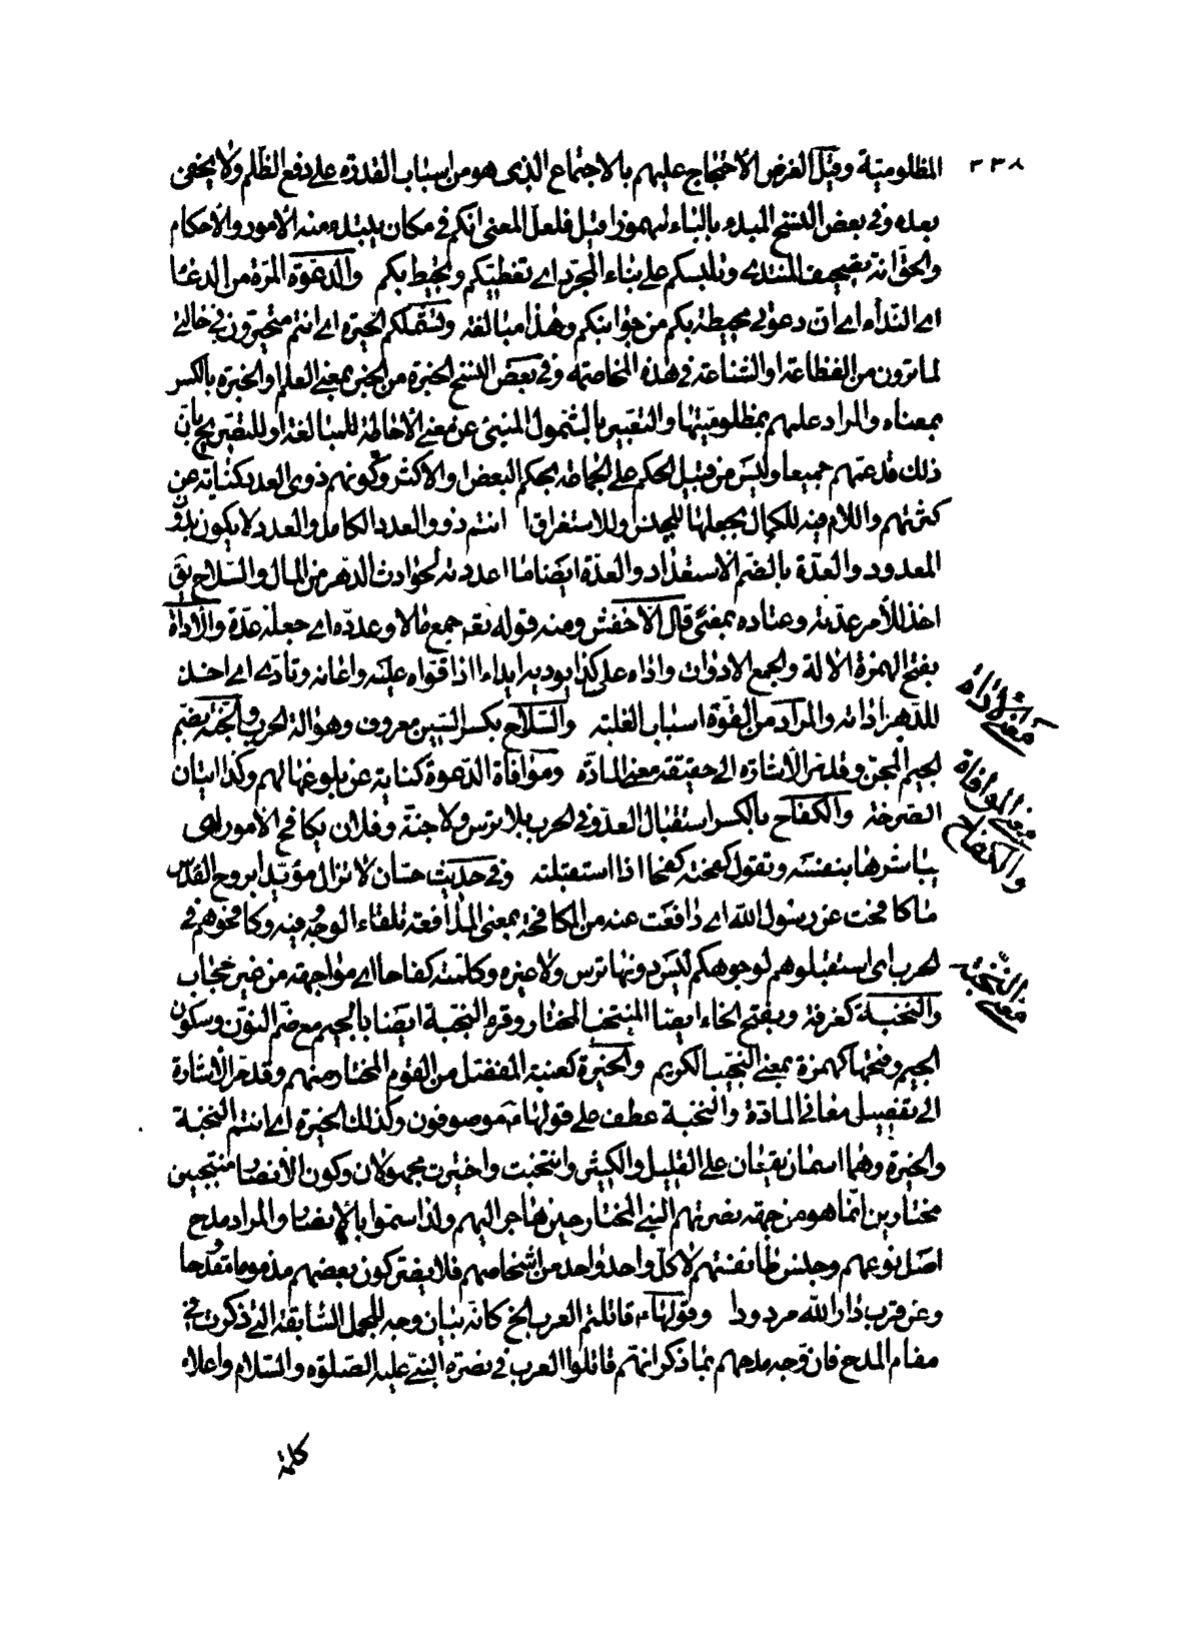 ٣٣٨
المظلوميّة وقيل الغرض الاحتجاج عليهم بالاجتماع الذى هو من اسباب القدرة على دفع الظلم ولا يخفى
بعده وفى بعض النسخ المبدء بالباء مهموزا قيل فلعل المعنى انكم فى مكان يبتدء منه الامور والاحكام
والحق انه تصحيف المنتدى وتلبسكم على بناء المجرد اى تغطيكم وتحيط بكم والدعوة المرة من الدعاء
اى النداء اى ان دعوتى محيطة بكم من جوانبكم وهذا مبالغة وتشملكم الحيرة اى انتم متحيرون فى حالى
لما ترون من الفظاعة او الشناعة فى هذه المخاصمة وفى بعض النسخ الخبرة من الخبر بمعنى العلم او الخبرة بالكسر
بمعناه والمراد علمهم بمظلوميتها والتعبير بالشمول المنبئ عن معنى الاحاطة للمبالغة او للتصريح بان
ذلك قد عمهم جميعا وليس من قبيل الحكم على الجماعة بحكم البعض او الاكثر وكونهم ذوى العدد كناية عن
كثرتهم واللام فيه للكمال بجعلها للجنس وللاستغراق انتم ذوو العدد الكامل والعدد لا يكون بدون
المعدود والعدّة بالضم الاستعداد والعدّة ايضا ما اعددته لحوادث الدهر من المال والسلاح يق
اخذ للأمر عدته وعتاده بمعنى قال الاخفش ومنه قوله تعالى جمع مالا وعدّده اى جعله عدّة والاداة
بفتح الهمزة الالة والجمع الادوات واداه على كذا يوديه ايداء اذا قواه عليه واعانه وتادّى اى اخذ
للدهر اداته والمراد من القوة اسباب الغلبة والسلاح بكسر السين معروف وهو الة الحرب والجنة بضم
الجيم المجن وقد مر الاشارة الى حقيقة معنى المادة وموافاة الدعوة كناية عن بلوغها لهم وكذا اتيان
الصرخة والكفاح بالكسر استقبال العدو فى الحرب بلا ترس ولا جنة وفلان يكافح الامور اى
يباشرها بنفسه وتقول كفحته كفحا اذا استقبلته وفى حديث حسان لا تزال مؤيدا بروح القدس
ما كافحت عن رسول الله اى دافعت عنه من المكافحة بمعنى المدافعة تلقاء الوجه وكافحوهم فى
الحرب اى استقبلوهم لوجوهكم ليس دونها ترس ولا غيره وكلمته كفاحا اى مواجهة من غير حجاب
والنخبة كغرفة وبفتح الخاء ايضا المنتخب المختار وقرء النجبة ايضا بالجيم مع ضم النون وسكون
الجيم وفتحها كهمزة بمعنى النجيب الكريم والخيرة كعنبة المفضل من القوم المختار منهم وقد مر الاشارة
الى تفصيل معانى المادة والنخبة عطف على قولها موصوفون وكذلك الخيرة اى انتم النخبة
والخيرة وهما اسمان يقعان على القليل والكثير وانتخبت واختيرت مجهولان وكون الانصار منتجبين
مختارين انما هو من جهة نصرتهم النبى المختار حين هاجر اليهم ولذا سموا بالانصار والمراد مدح
اصل نوعهم وجنس طائفتهم لا كل واحد واحد من اشخاصهم فلا يضر كون بعضهم مذموما مقدوحا
وعن قرب دار الله مردودا وقولها قاتلتم العرب الخ كانه بيان وجه للجمل السابقة التى ذكرت فى
مقام المدح فان وجه مدحهم بما ذكر انهم قاتلوا العرب فى نصرة النبى عليه الصلوة والسلام واعلاء
كلمة
معنى الاداة
معنى الموافاة
والكفاح
معنى النخبة